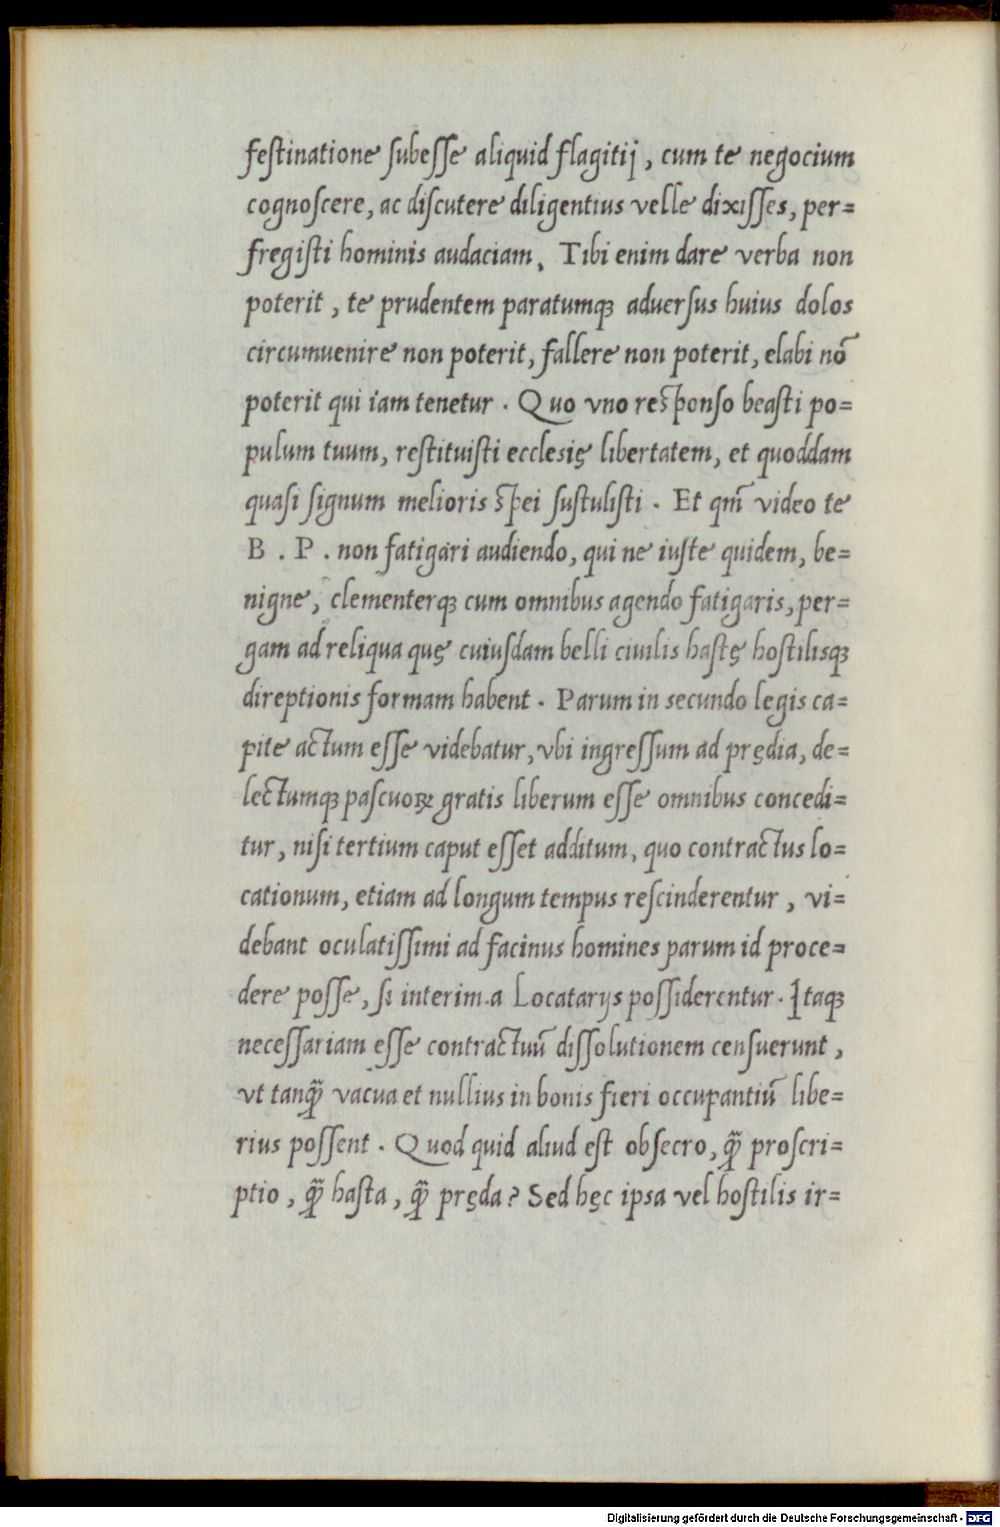 festinatione subesse aliquid flagitij, cum te negocium
cognoscere, ac discutere diligentius velle dixisses, per=
fregisti hominis audaciam. Tibi enim dare verba non
poterit, te prudentem paratumqꝫ aduersus huius dolos
circumuenire non poterit, fallere non poterit, elabi nō
poterit qui iam tenetur. Quo vno responso beasti po=
pulum tuum, restituisti ecclesię libertatem, et quoddam
quasi signum melioris spei sustulisti. Et qm̄ video te
B. P. non fatigari audiendo, qui ne iuste quidem, be=
nigne, clementerqꝫ cum omnibus agendo fatigaris, per=
gam ad reliqua quę cuiusdam belli ciuilis hastę hostilisqꝫ
direptionis formam habent. Parum in secundo legis ca=
pite actum esse videbatur, vbi ingressum ad prędia, de=
lectumqꝫ pascuoꝝ gratis liberum esse omnibus concedi=
tur, nisi tertium caput esset additum, quo contractus lo=
cationum, etiam ad longum tempus rescinderentur, vi=
debant oculatissimi ad facinus homines parum id proce=
dere posse, si interim a Locatarijs possiderentur. Itaqꝫ
necessariam esse contractuū dissolutionem censuerunt,
vt tanqꝫ̃ vacua et nullius in bonis fieri occupantiū libe=
rius possent. Quod quid aliud est obsecro, qꝫ̃ proscri=
ptio, qꝫ̃ hasta, qꝫ̃ pręda? Sed hęc ipsa vel hostilis ir=
Digitalisierung gefördert durch die Deutsche Forschungsgemeinschaft - DFG